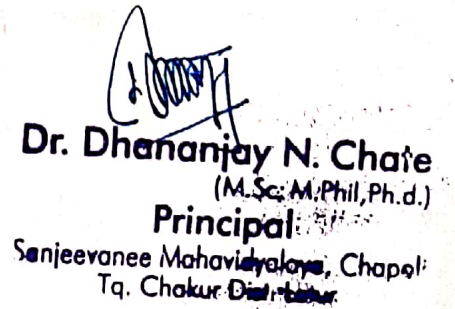 Dr. Dhananjay N. Chate
(M.Sc. M.Phil,Ph.d.)
Principal
Sanjeevanee Mahavidyalaya, Chapoli
Tq. Chakur